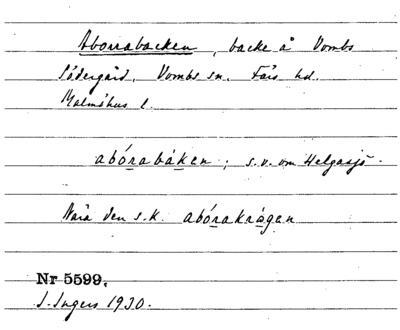 Aborrabacken, backe å Vombs
Södergård, Vombs sn. Färs hd.
Malmöhus l.
abórabáken; s.v. om Helgasjö.
Nära den s.k. abórakrágen
Nr 5599.
I. Ingers 1930.